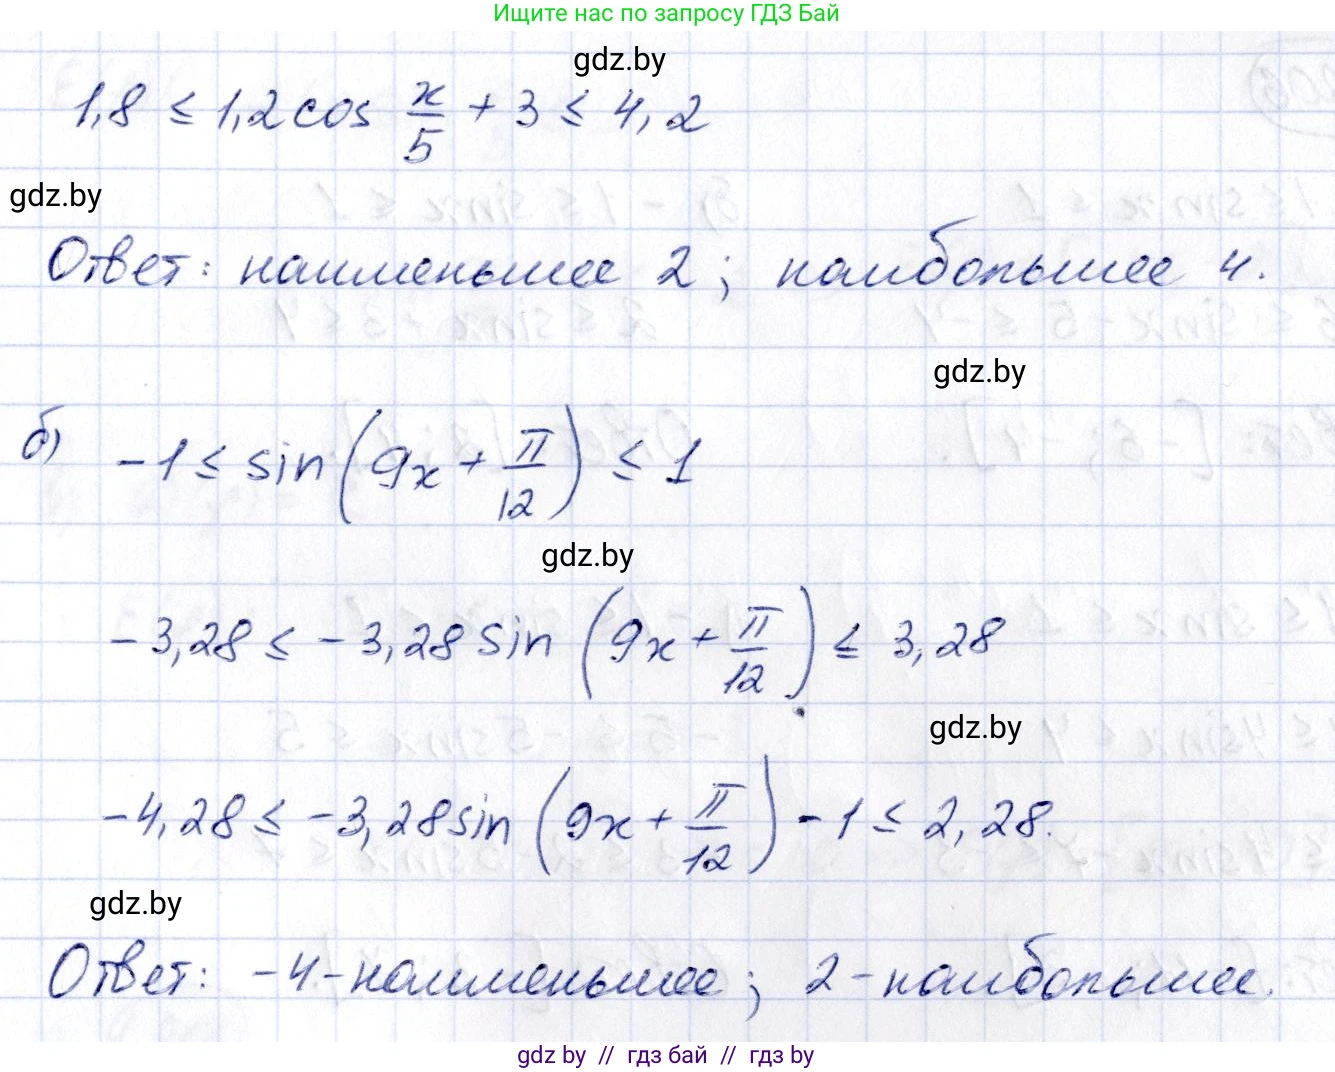 Ищите нас по запросу ГДЗ Бай
gdz.by
1,8 ≤ 1,2 cos x/5 + 3 ≤ 4,2
gdz.by
Ответ: наименьшее 2; наибольшее 4.
gdz.by
б) -1 ≤ sin(9x + π/12) ≤ 1
gdz.by
-3,28 ≤ -3,28 sin(9x + π/12) ≤ 3,28
gdz.by
-4,28 ≤ -3,28 sin(9x + π/12) - 1 ≤ 2,28.
gdz.by
Ответ: -4 - наименьшее; 2 - наибольшее.
gdz by // гдз бай // гдз by